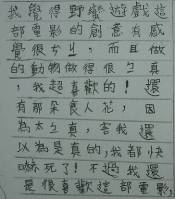 我覺得野蠻遊戲這
部電影的創意有感
覺很ㄅㄧㄤ，而且做
的動物做得很ㄅ真
，我超喜歡的！還
有那朵食人花，因
為太ㄅ真，害我還
以為是真的，我都快
嚇死了！不過我還
是很喜歡這部電影，